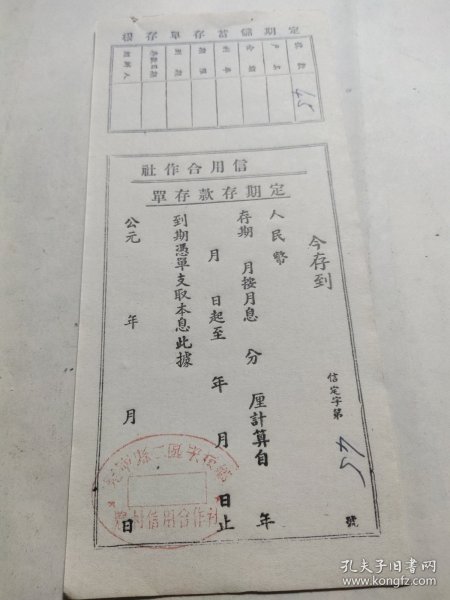 定期儲蓄存單存根
號數
戶名
金額
利率
期限
57
信用合作社
定期存款存單
信定字第57號
今存到
人民幣
存期 月按月息 分 厘計算自 年
月 日起至 年 月 日止
到期憑單支取本息此據
公元 年 月 日
村信用合作社
孔夫子旧书网
www.kongfz.com